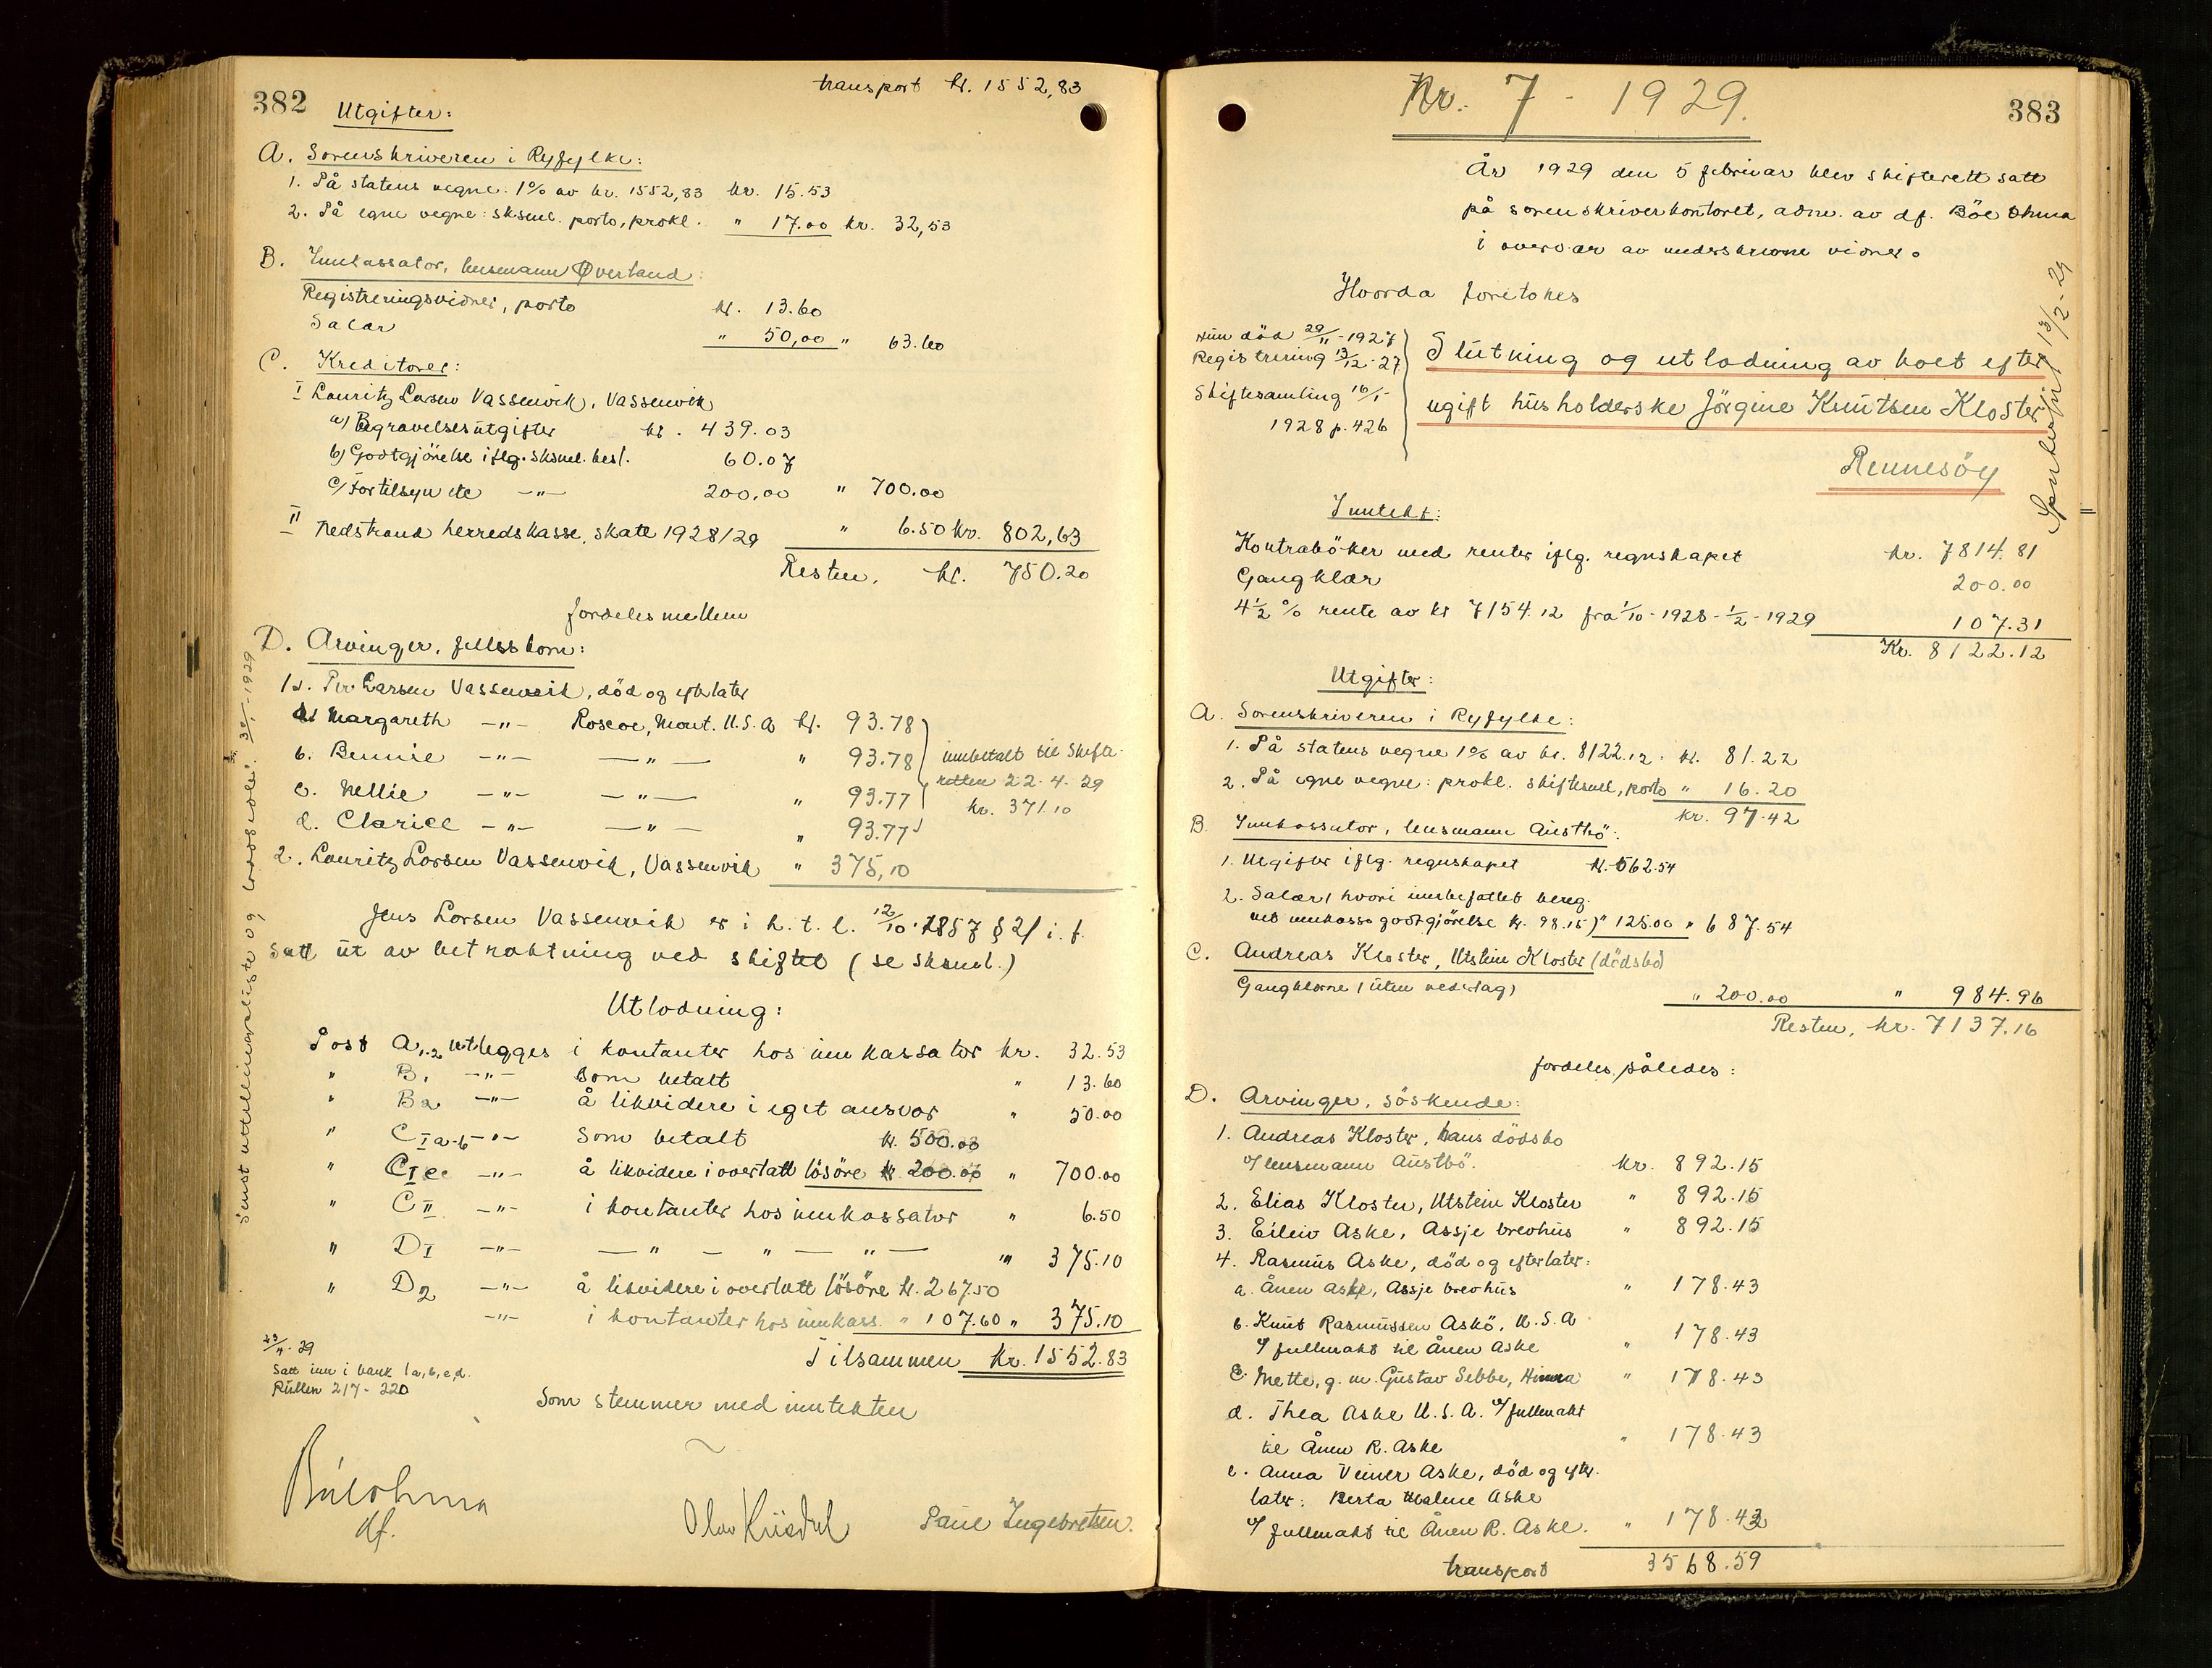 382
transport kr. 1552,83
Utgifter:
A. Sorenskriveren i Ryfylke:
1. På statens vegne: 1% av kr. 1552,83 kr. 15.53
2. På egne vegne: sksml. porto, prokl. " 17.00 kr. 32,53
B. Innkassator, lensmann Øverland:
Registreringsvidner, porto kr. 13.60
Salær " 50,00 " 63.60
C. Kreditorer:
I Lauritz Larsen Vassenvik, Vassenvik
a) Begravelsesutgifter kr. 439.03
b) Godtgjörelse iflg. sksml. besl. 60.07
c) For tilsyn etc —"— 200.00 " 700.00
II Nedstrand herredskasse, skatt 1928/29 " 6.50 kr. 802,63
Resten, kr. 750.20
fordeles mellem
D. Arvinger, fellesborn:
1. Per Larsen Vassenvik, död og efterlater
a. Margareth —"— Roscoe, Mont. U.S.A kr. 93.78
b. Bennie —"— —"— " 93.78
c. Nellie —"— —"— " 93.77
d. Clarice —"— —"— " 93.77
innbetalt til skifte-
retten 22-4-29
kr. 371.10
2. Lauritz Larsen Vassenvik, Vassenvik " 375,10
Jens Larsen Vassenvik er i h. t. l. 12/10-1857 § 21 i. f.
satt ut av betraktning ved skiftet (se sksml.)
Utlodning:
Post A1.2 utlegges i kontanter hos innkassator kr. 32.53
" B1 —"— som betalt " 13.60
" B2 —"— å likvidere i eget ansvar " 50.00
" C I a-b —"— som betalt kr. 500.00
" C I c —"— å likvidere i overtatt lösöre kr 200.00 " 700.00
" C II —"— i kontanter hos innkassator " 6.50
" D1 —"— —"—"—"— " 375.10
" D2 —"— å likvidere i overtatt lösöre kr. 267.50
—"— i kontanter hos innkass. " 107.60 " 375.10
Tilsammen kr. 1552.83
Som stemmer med inntekten
23/4-29
Satt inn i bank 1a, b, c, d.
Rullen 217-220
df.
Paul Ingebretsen.
383
Nr. 7 - 1929.
År 1929 den 5 februar blev skifterett satt
på sorenskriverkontoret, adm. av df. Böe Ohma
i overvær av underskrevne vidner.
Hvorda foretokes
Hun död 29/11-1927
Registrering 13/12-27
Skiftesamling 16/1-
1928 p. 426
Slutning og utlodning av boet efter
ugift husholderske Jörgine Knutsen Kloster
Rennesöy
Inntekt:
Kontraböker med renter iflg. regnskapet kr. 7814.81
Gangklær 200.00
4½ % rente av kr 7154.12 fra 1/10-1928 - 1/2-1929 107.31
Kr. 8122.12
Utgifter:
A. Sorenskriveren i Ryfylke:
1. På statens vegne 1% av kr. 8122.12. kr. 81.22
2. På egne vegne: prokl. skiftesml, porto " 16.20
kr. 97.42
B. Innkassator, lensmann Austbö:
1. Utgifter iflg. regnskapet kr. 562.54
2. Salær (hvori innbefattet bereg-
net innkassogodtgjörelse kr. 98.15) " 125.00 " 687.54
C. Andreas Kloster, Utstein Kloster (dödsbo)
Gangklærne (uten vederlag) " 200.00 " 984.96
Resten, kr. 7137.16
fordeles således:
D. Arvinger, söskende:
1. Andreas Kloster, hans dödsbo
v/ lensmann Austbö. kr. 892.15
2. Elias Kloster, Utstein Kloster " 892.15
3. Eileiv Aske, Assje brevhus " 892.15
4. Rasmus Aske, död og efterlater:
a. Ånen Aske, Assje brevhus " 178.43
b. Knut Rasmussen Askö, U.S.A
v/ fullmakt til Ånen Aske " 178.43
c. Mette, g. m. Gustav Sebbe, Hinna " 178.43
d. Thea Aske U.S.A. v/ fullmakt
til Ånen R. Aske " 178.43
e. Anna Veiner Aske, död og efter-
later: Berta Malene Aske
v/ fullmakt til Ånen R. Aske. " 178.42
transport 3568.59